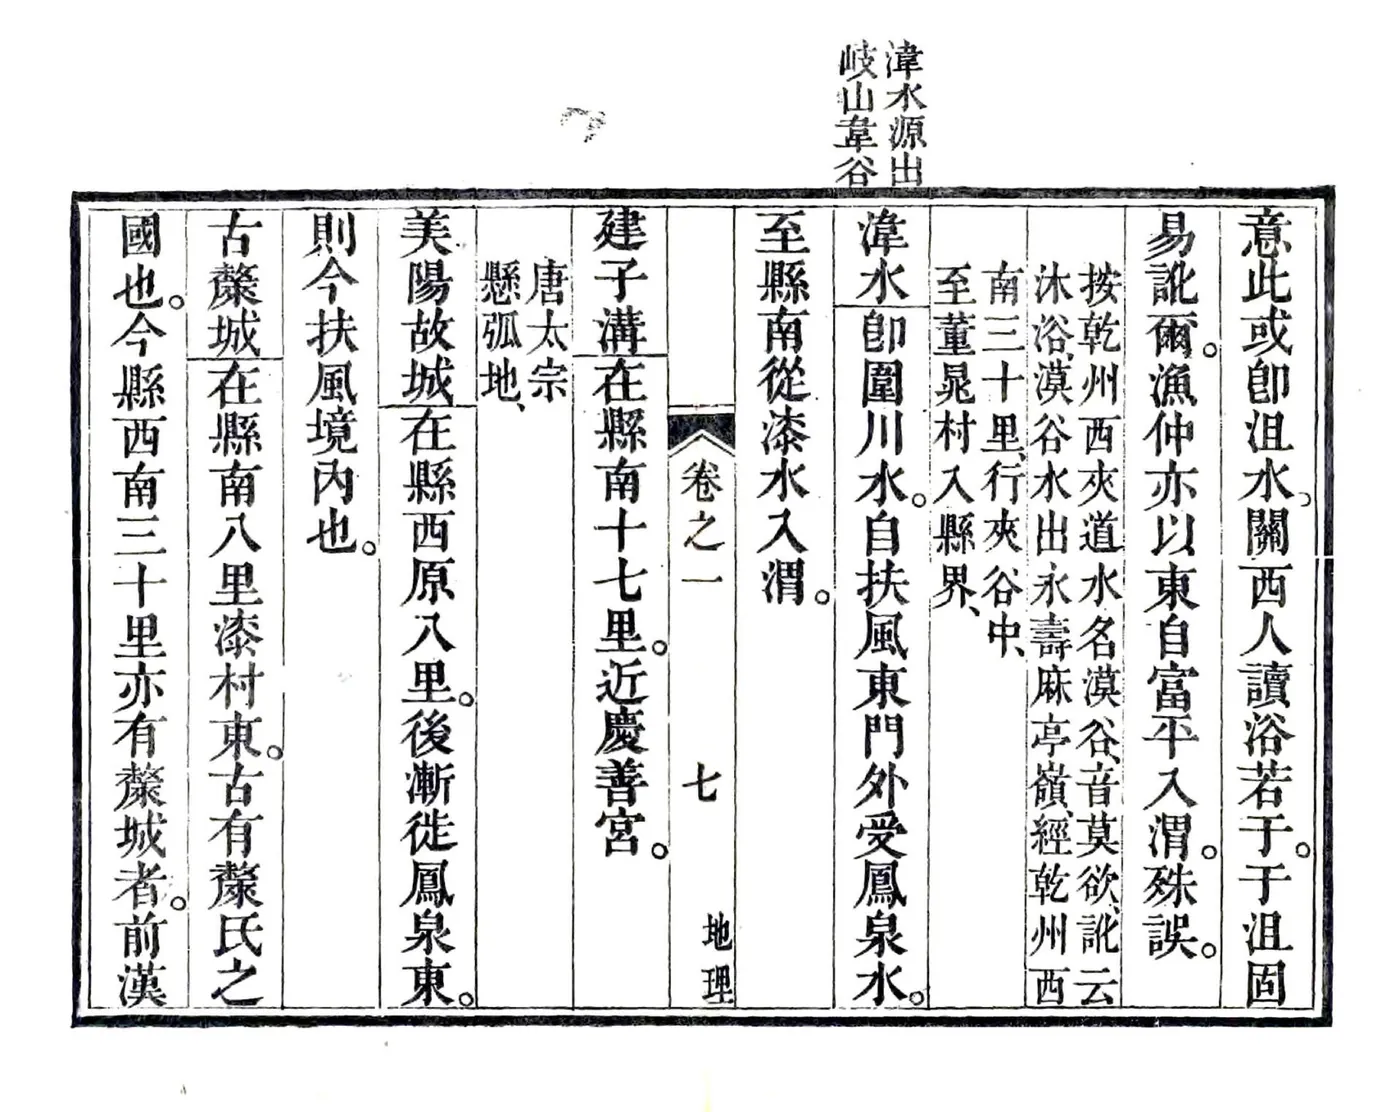 湋水源出
岐山韋谷
意此或卽沮水、關西人讀浴若于。于沮固
易訛爾。漁仲亦以東自富平入渭。殊誤。
按乾州西夾道水名漠谷、音莫欲、訛云
沐浴、漠谷水出永壽麻亭嶺、經乾州西
南三十里、行夾谷中、
至董晁村入縣界、
湋水卽圍川水。自扶風東門外受鳳泉水。
至縣南從漆水入渭。
卷之一 七 地理
建子溝在縣南十七里。近慶善宮。
唐太宗
懸弧地、
美陽故城在縣西原八里。後漸徙鳳泉東。
則今扶風境內也。
古斄城在縣南八里漆村東。古有斄氏之
國也。今縣西南三十里亦有斄城者。前漢